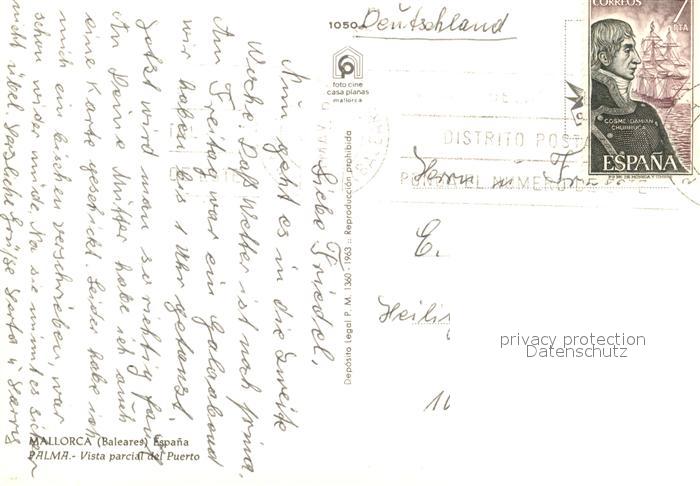 1050
Deutschland
CORREOS
7
PTA
COSME DAMIAN
CHURRUCA
ESPAÑA
foto cine
casa planas
mallorca
DISTRITO POSTAL
PONGA EL NUMERO DE ESTE
Herrn u. Fr
E.
Heili
privacy protection
Datenschutz
Depósito Legal P. M. 1360 - 1963 :: Reproducción prohibida
Liebe Friedel,
Nun geht es in die zweite
Woche. Das Wetter ist noch prima.
Am Freitag war ein Galaabend
wir haben bis 1 Uhr getanzt.
Jetzt wird man so richtig faul
An Deine Mutter habe ich auch
eine Karte geschickt. Leider habe ich
mich ein bischen verschrieben, war
schon wieder müde. Na sie nimmt es sicher
nicht übel. Herzliche Grüße
MALLORCA (Baleares) España
PALMA.- Vista parcial del Puerto